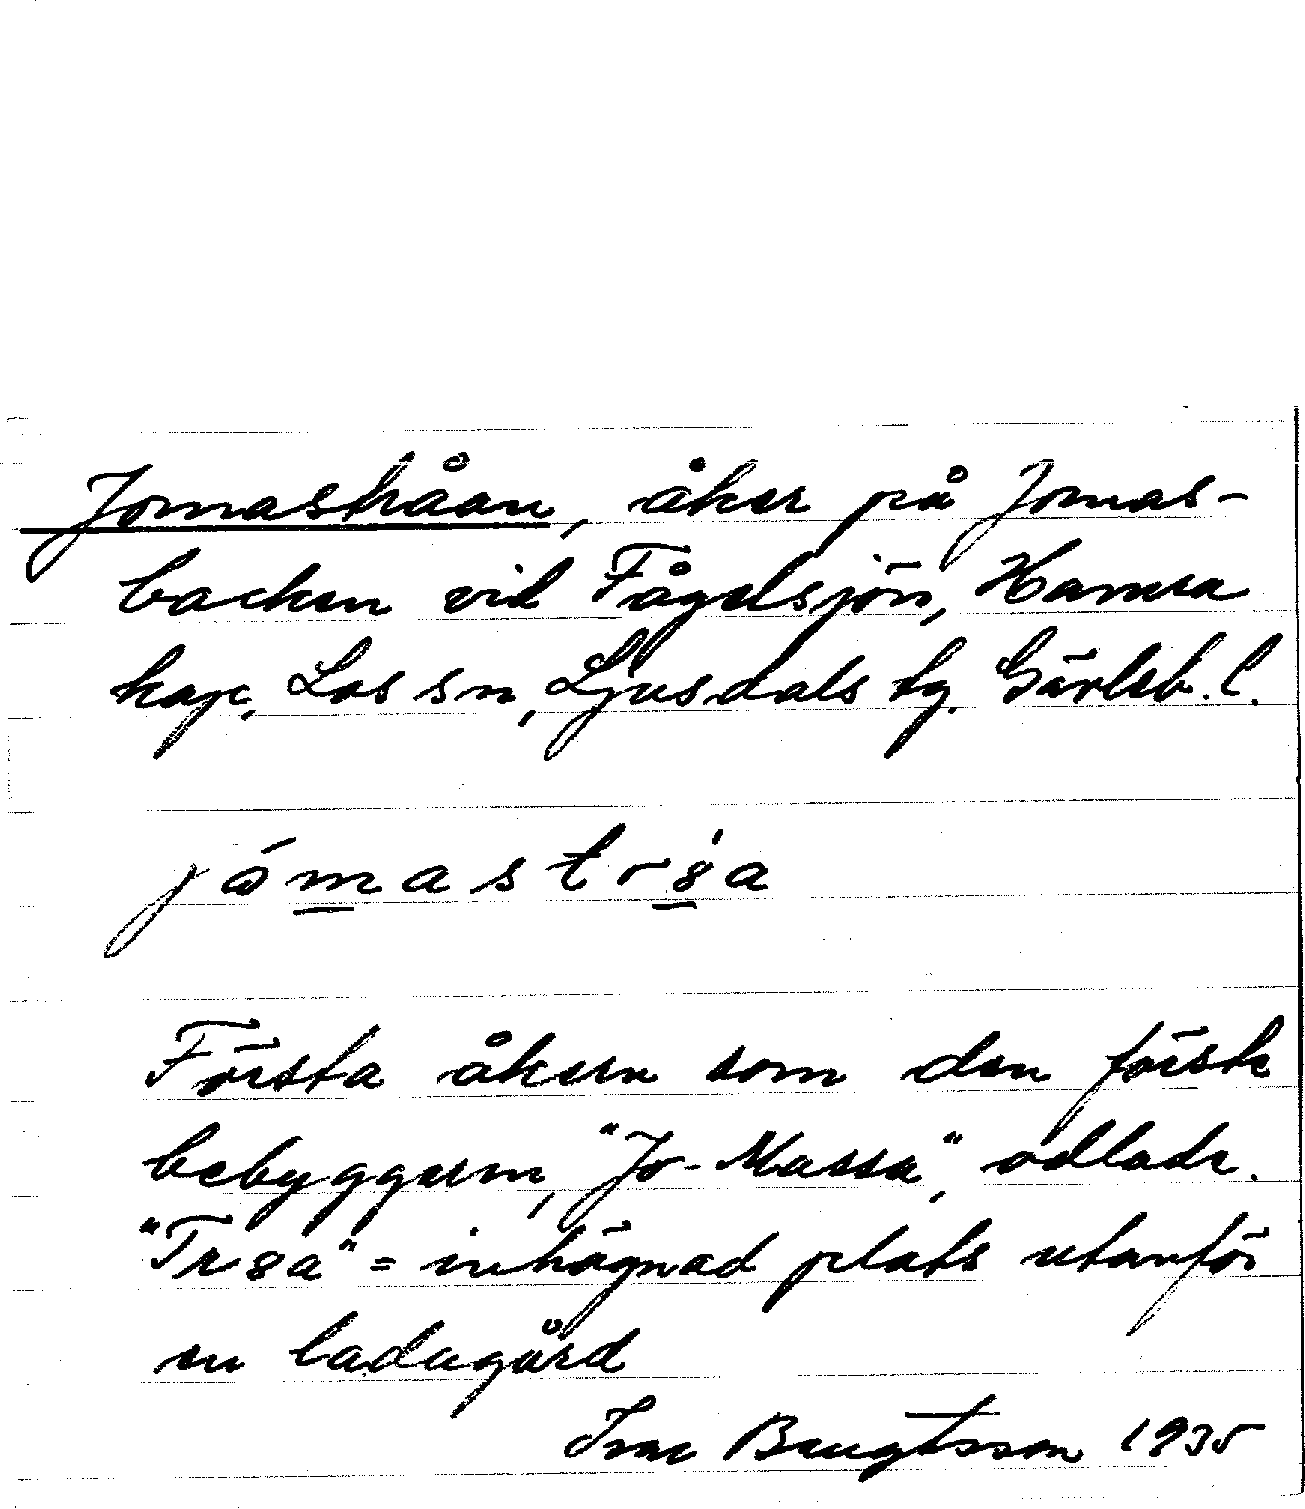 Jomastråan, åker på Jomas-
backen vid Fågelsjön, Hamra
kap, Los sn, Ljusdals tg. Gävleb. l.
jámastr8́a
Första åkern som den förste
bebyggern, "Jo-Massa", odlade.
"Tr8a" = inhägnad plats utanför
en ladugård
Ivar Bengtsson 1935